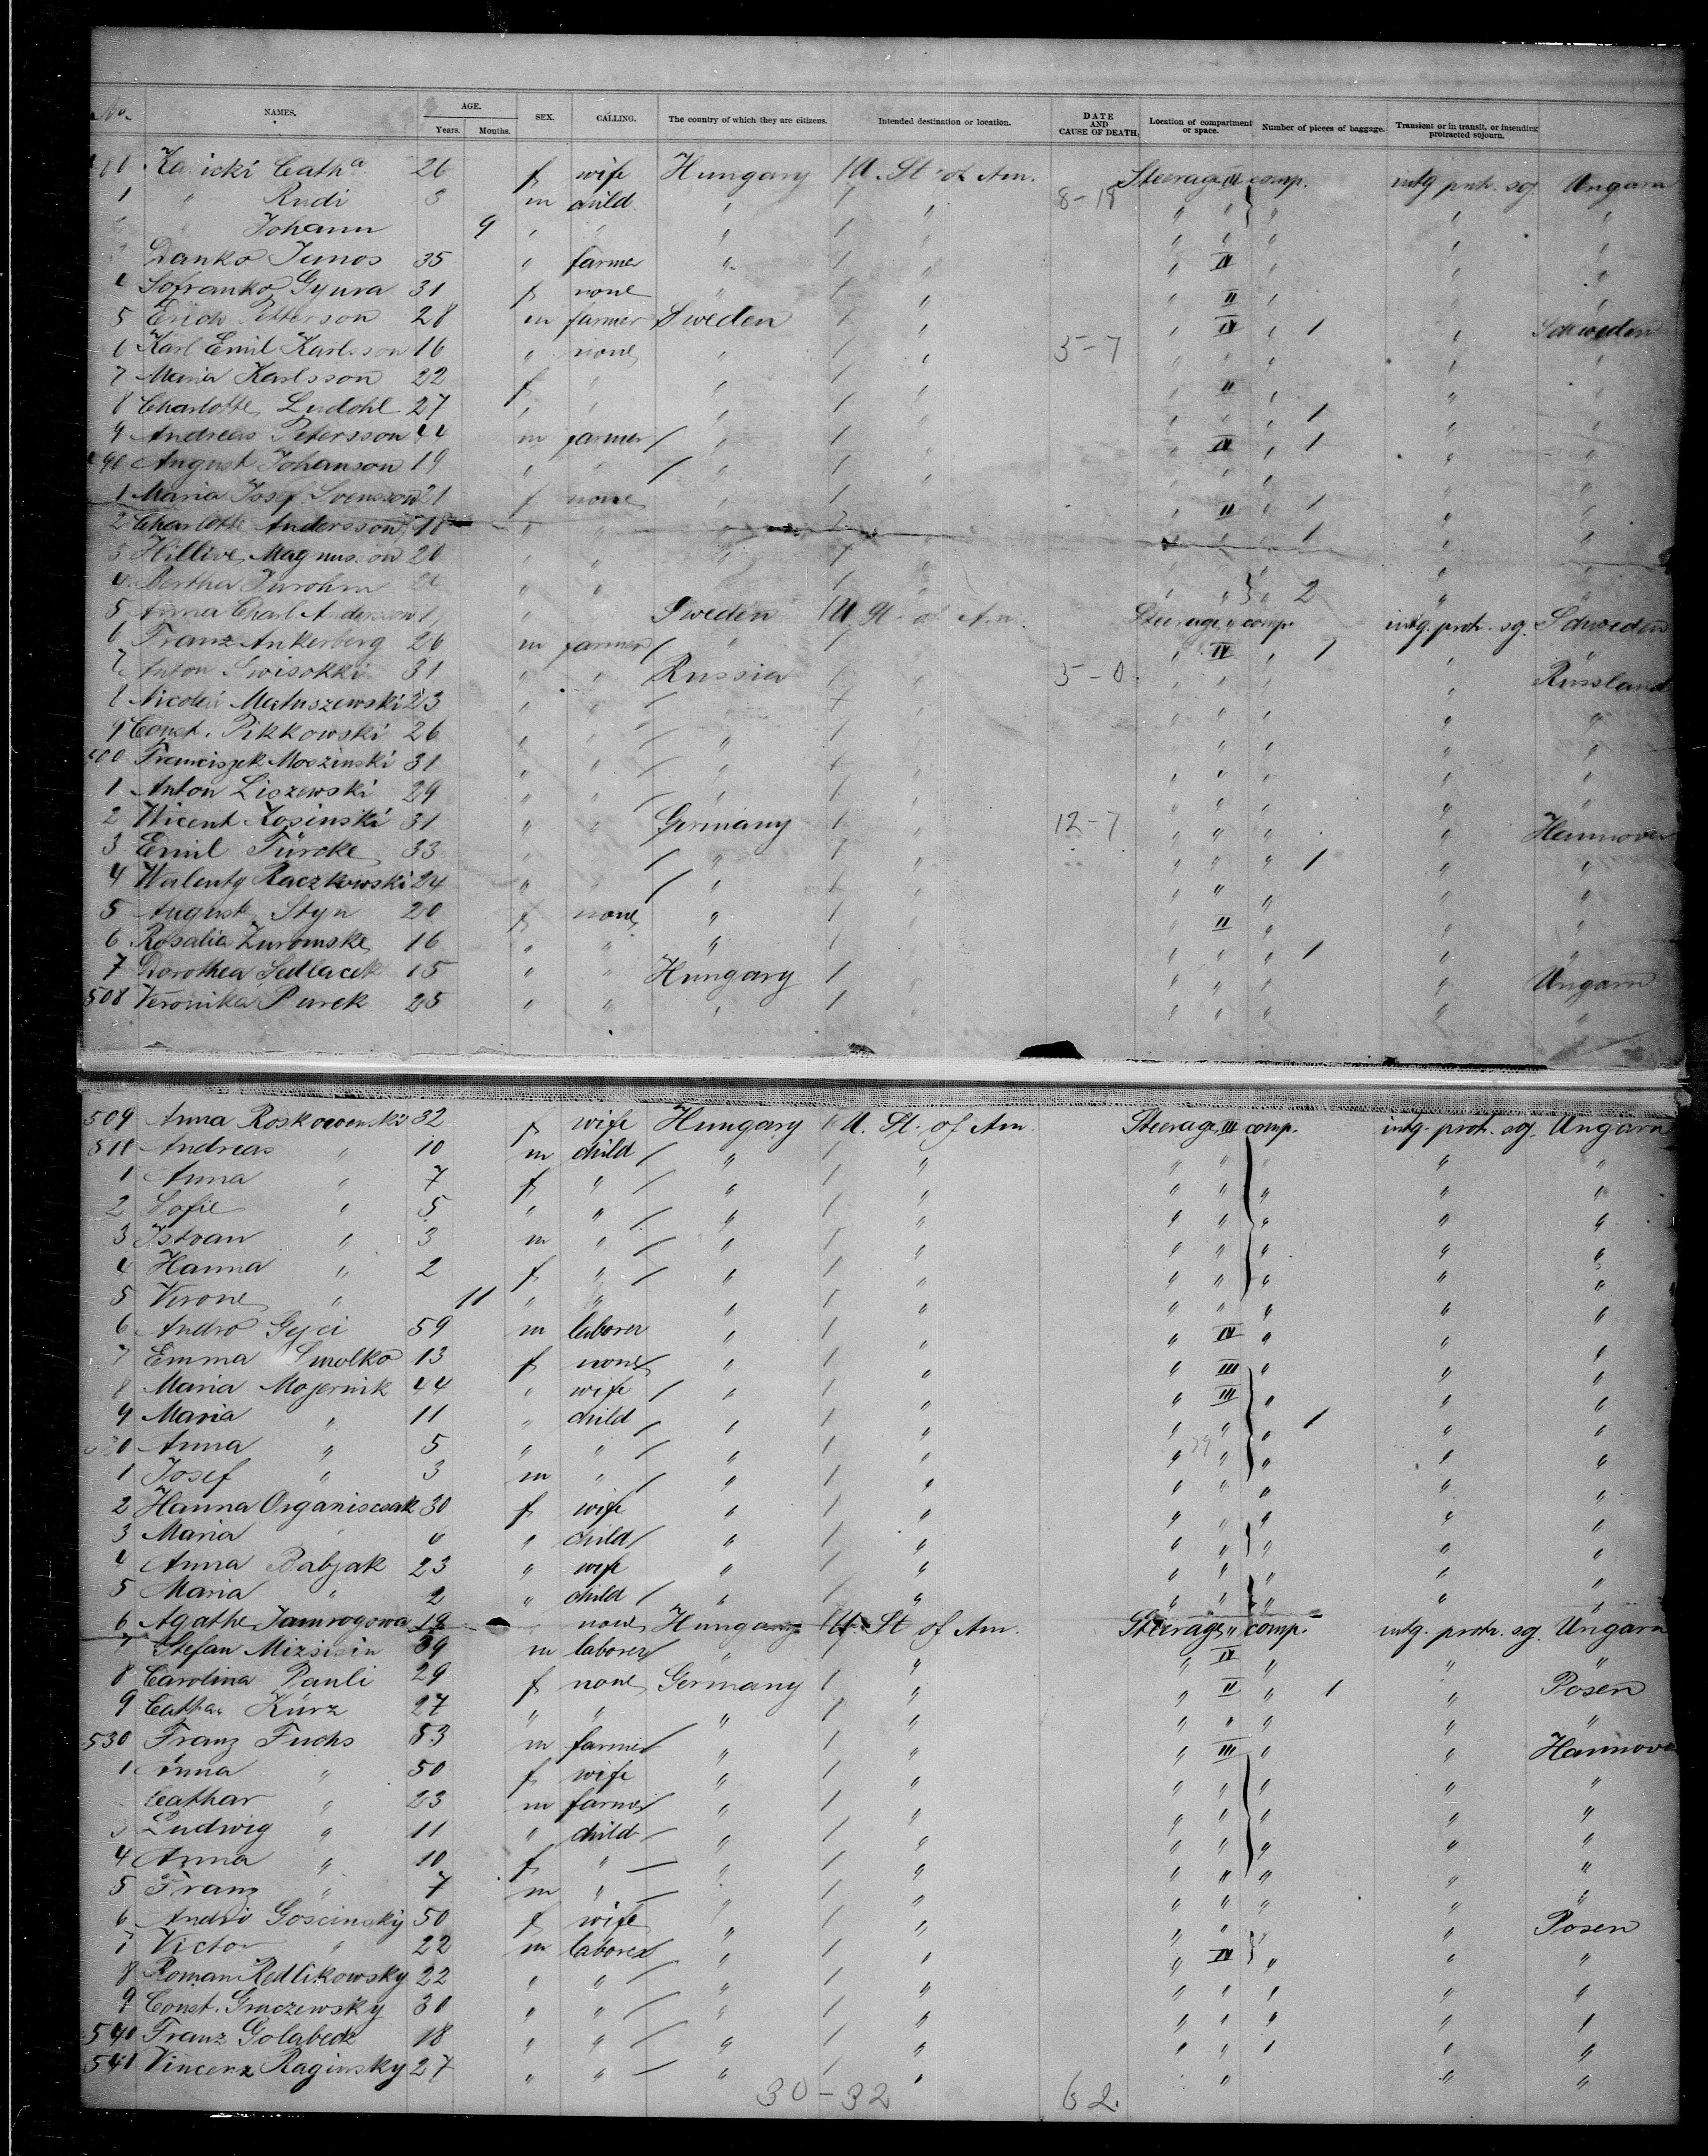 No. NAMES. AGE. Years. Months. SEX. CALLING. The country of which they are citizens. Intended destination or location. DATE AND CAUSE OF DEATH. Location of compartment or space. Number of pieces of baggage. Transient or in transit, or intending protracted sojourn.
Cath a 26 f wife Hungary / U. St. of Am. Steerage III comp. intg. prtr. sg. Ungarn
1 " Rudi 3 m child " / " 8-18 " " " " "
" Johann 9 " " " / " " " " " "
Danko Janos 35 " farmer " / " " IV " " "
4 Sofranko Gyura 31 f none " / " " II " " "
5 Erich Petterson 28 m farmer Sweden / " " IV " 1 " Schweden
6 Karl Emil Karlsson 16 " none " / " 5-7 " " " " "
7 Maria Karlsson 22 f " " / " " II " " "
8 Charlotte Ludohl 27 " " " / " " " " 1 " "
9 Andreas Petersson 44 m farmer / " / " " IV " 1 " "
490 August Johanson 19 " " / " / " " " " " "
1 Maria Josef. Svensson 21 f none " / " " II " 1 " "
2 Charlotte Andersson 18 " " " / " " " " 1 " "
3 Magnusson 20 " " " / " " " " " "
4 Bertha " " / " " " " 2 " "
5 Anna Charl. Andersson 1 " Sweden / U. St. of Am. Steerage " comp. intg. prtr. sg. Schweden
6 Franz Ankerberg 26 m farmer / " / " " IV " 1 " "
7 Anton Swisokki 31 " " Russia / " 5-0 " " " " Russland
8 Nicolai Matuszewski 23 " " / " / " " " " " "
9 Const. Pikkowski 26 " " / " / " " " " " "
500 Franciszek Moszinski 31 " " / " / " " " " " "
1 Anton Liszewski 29 " " / " / " " " " " "
2 Wicent Kosinski 31 " " Germany / " 12-7 " " " " Hannover
3 Emil Türcke 33 " " / " / " " " " 1 " "
4 Walenty Raczkowski 24 " " / " / " " " " " "
5 August Styn 20 f none " / " " II " " "
6 Rosalia Zuromske 16 " " " / " " " " 1 " "
7 Dorothea Sedlacek 15 " " Hungary / " " " " " Ungarn
508 Veronika Purek 25 " " " / " " " " " "
509 Anna Roskowenski 32 f wife Hungary / U. St. of Am. Steerage III comp. intg. prtr. sg. Ungarn
510 Andreas " 10 m child / " / " " " " " "
1 Anna " 7 f " / " / " " " " " "
2 Sofie " 5 " " / " / " " " " " "
3 Istvan " 3 m " / " / " " " " " "
4 Hanna " 2 f " / " / " " " " " "
5 Verone " 11 " " " / " " " " " "
6 Andro Gejci 59 m laborer " / " " IV " " "
7 Emma Smolko 13 f none / " / " " III " " "
8 Maria Majernik 44 " wife / " / " " III " " "
9 Maria " 11 " child / " / " " " " 1 " "
Anna " 5 " " / " / " " " " " "
1 Josef " 3 m " / " / " " " " " "
2 Hanna Organiscsak 30 f wife " / " " " " " "
3 Maria " child / " / " " " " " "
4 Anna Babjak 23 " wife " / " " " " " "
5 Maria " 2 " child / " / " " " " " "
6 Agathe Jamrogowa " none Hungary / U. St. of Am. Steerage " comp. intg. prtr. sg. Ungarn
7 Stefan Mizsisin 39 m laborer / " / " " IV " " "
8 Carolina Pauli 29 f none Germany / " " II " 1 " Posen
9 Cathar Kürz 27 " " " / " " " " " "
530 Franz Fuchs 53 m farmer / " / " " III " " Hannover
1 Anna " 50 f wife " / " " " " " "
Cathar " 23 m farmer / " / " " " " " "
3 Ludwig " 11 " child / " / " " " " " "
4 Anna " 10 f " / " / " " " " " "
5 Franz " 7 m " / " / " " " " " "
6 Andri Goscinsky 50 f wife " / " " " " " Posen
7 Victor " 22 m laborer / " / " " IV " " "
8 Roman Redlikowsky 22 " " / " / " " " " " "
9 Const. Gruczewsky 30 " " / " / " " " " " "
540 Franz Golabeck 18 " " / " / " " " " " "
541 Vincenz Raginsky 27 " " / " / " " " "
30-32 62.